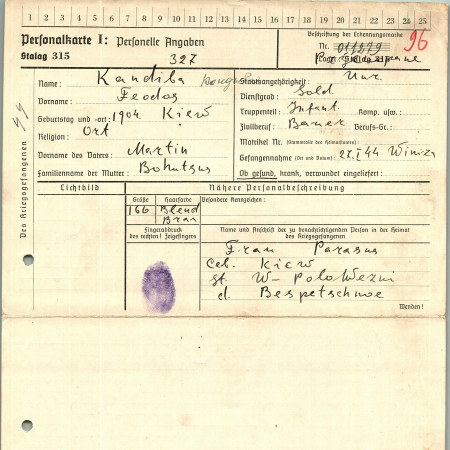 1 2 3 4 5 6 7 8 9 10 11 12 13 14 15 16 17 18 19 20 21 22 23 24 25
Personalkarte I: Personelle Angaben
Beschriftung der Erkennungsmarke
Nr. 011279
96
Stalag 315
327
Des Kriegsgefangenen
Name: Kandiba
Staatsangehörigkeit: Ukr
Vorname: Feodos
Dienstgrad: Sold
Truppenteil: Infant. Komp. usw.:
Geburtstag und -ort: 1904 Kiew
Zivilberuf: Bauer Berufs-Gr.:
Religion: Ort
Matrikel Nr. (Stammrolle des Heimatstaates):
Vorname des Vaters: Martin
Gefangennahme (Ort und Datum): 27.I 44 Winiza
Familienname der Mutter: Bohutsus
Ob gesund, krank, verwundet eingeliefert:
Lichtbild
Nähere Personalbeschreibung
Größe Haarfarbe Besondere Kennzeichen:
166 Blond
Brau
Fingerabdruck
des rechten Zeigefingers
Name und Anschrift der zu benachrichtigenden Person in der Heimat
des Kriegsgefangenen
Frau Parasus
Geb. Kiew
St. W- Polowezni
d. Bespetschnoe
Wenden!